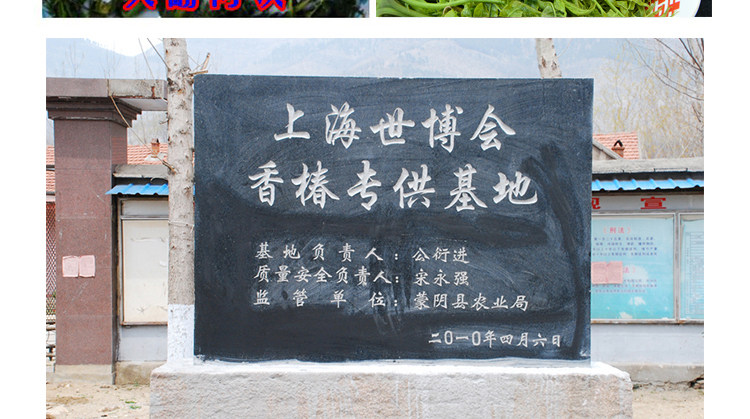 上海世博会
香椿专供基地
基地负责人：公衍进
质量安全负责人：宋永强
监管单位：蒙阴县农业局
二〇一〇年四月六日
宣